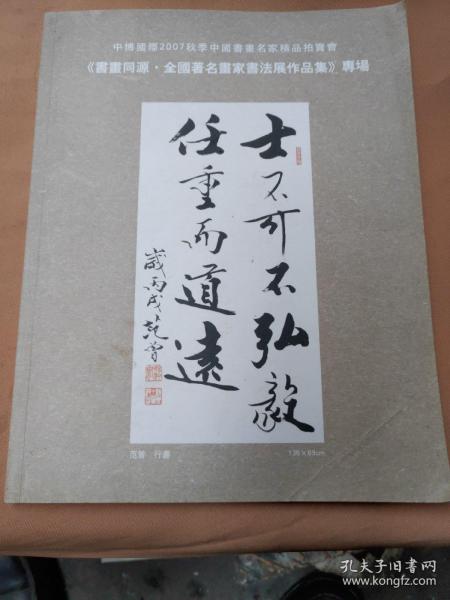 中博國際2007秋季中國書畫名家精品拍賣會
《書畫同源·全國著名畫家書法展作品集》專場
士不可不弘毅
任重而道遠
歲丙戌 范曾
范曾 行書
136×69cm
孔夫子旧书网
www.kongfz.com